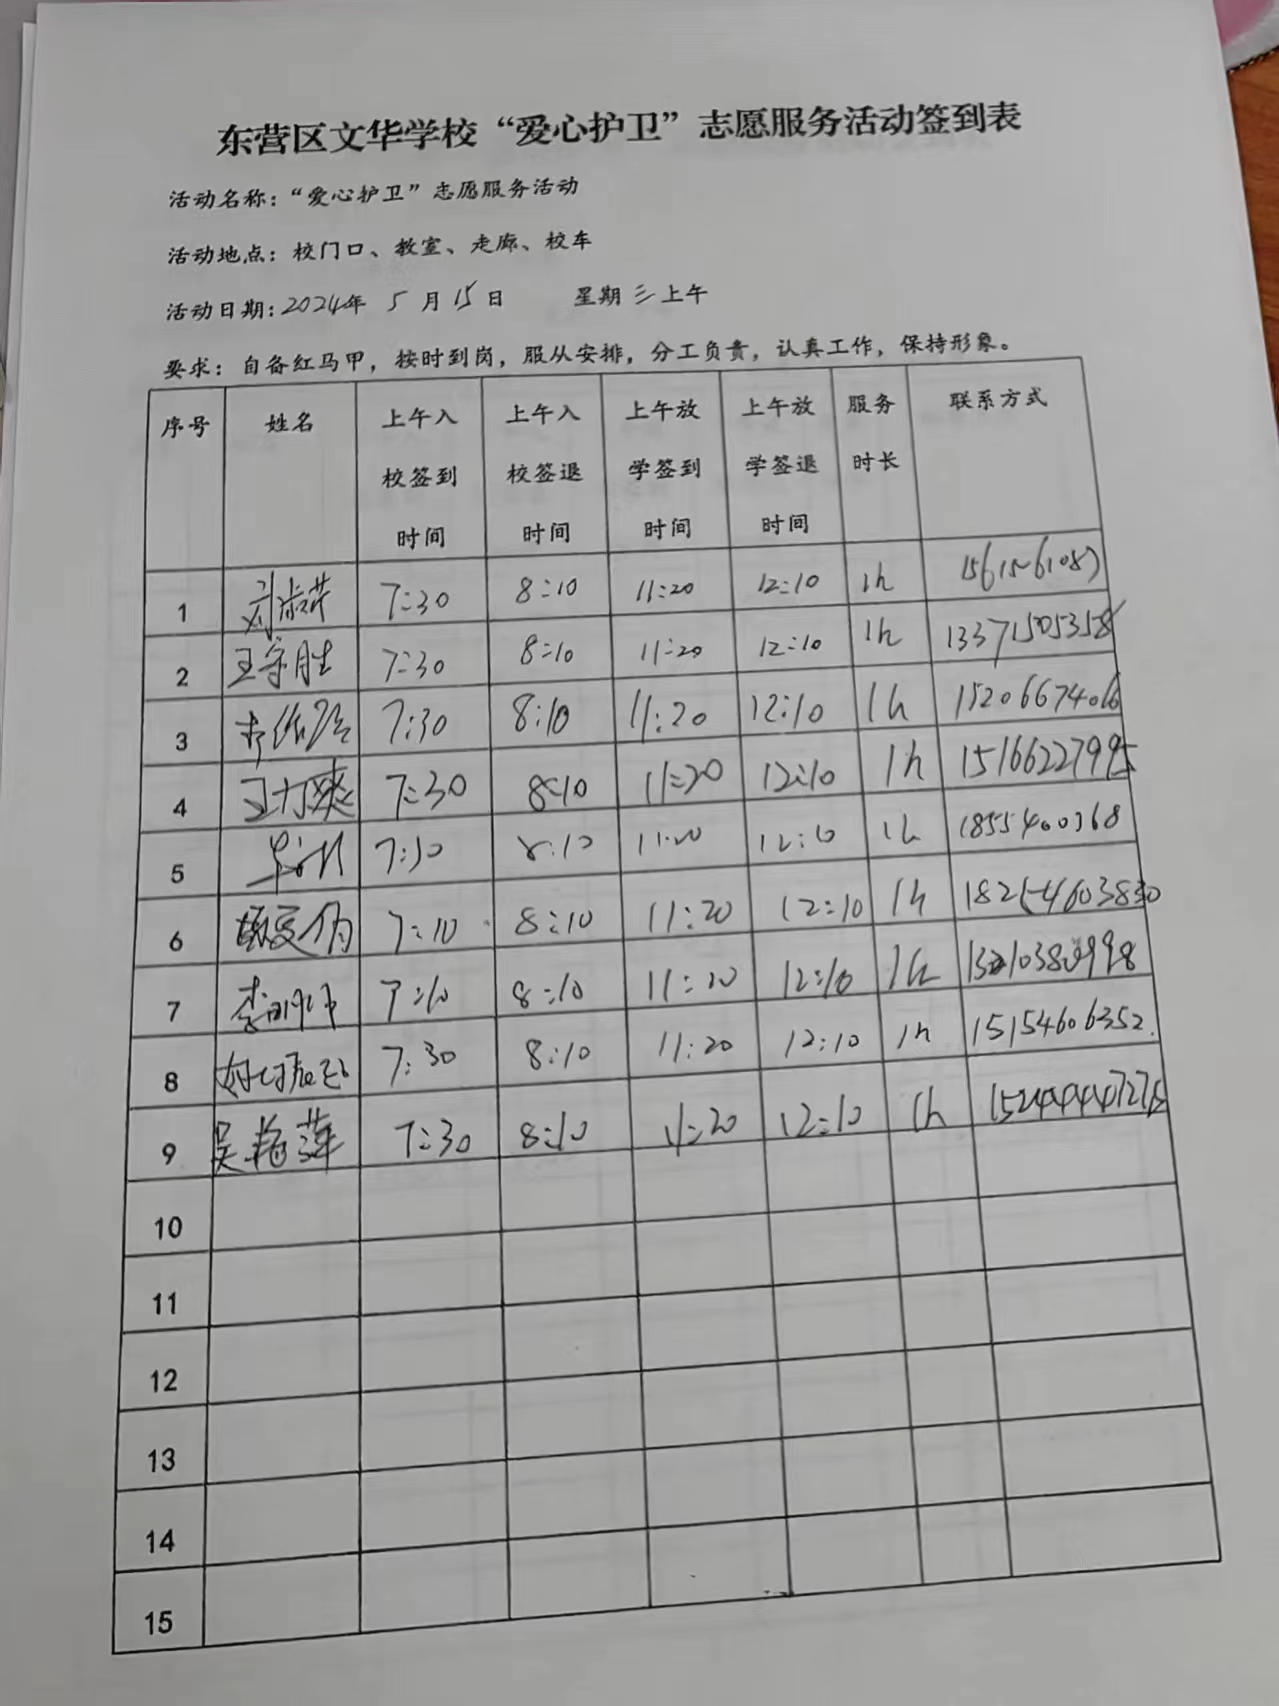 东营区文华学校“爱心护卫”志愿服务活动签到表
活动名称：“爱心护卫”志愿服务活动
活动地点：校门口、教室、走廊、校车
活动日期：2024年 5 月 15 日 星期 三 上午
要求：自备红马甲，按时到岗，服从安排，分工负责，认真工作，保持形象。
序号 姓名 上午入校签到时间 上午入校签退时间 上午放学签到时间 上午放学签退时间 服务时长 联系方式
1 刘淑芹 7:30 8:10 11:20 12:10 1h
2 王守胜 7:30 8:10 11:20 12:10 1h 13371505358
3 7:30 8:10 11:20 12:10 1h 15206674066
4 王力爽 7:30 8:10 11:20 12:10 1h 15166227995
5 7:30 8:10 11:20 12:10 1h
6 7:10 8:10 11:20 12:10 1h 18254603830
7 7:10 8:10 11:20 12:10 1h
8 7:30 8:10 11:20 12:10 1h 15154606352.
9 吴艳萍 7:30 8:10 11:20 12:10 1h
10
11
12
13
14
15